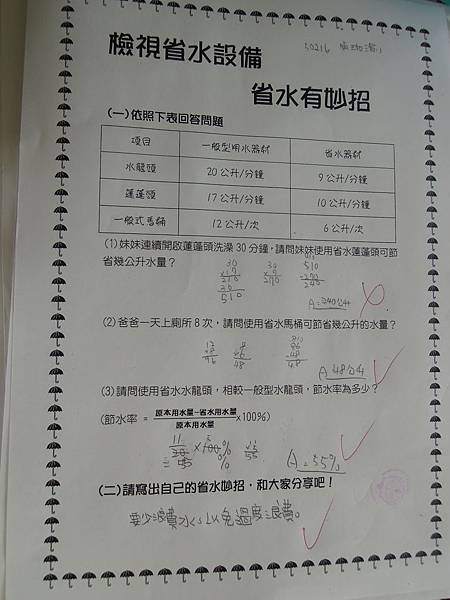 檢視省水設備
30216
省水有妙招
(一)依照下表回答問題
項目 一般型用水器材 省水器材
水龍頭 20公升/分鐘 9公升/分鐘
蓮蓬頭 17公升/分鐘 10公升/分鐘
一般式馬桶 12公升/次 6公升/次
(1)妹妹連續開啟蓮蓬頭洗澡30分鐘,請問妹妹使用省水蓮蓬頭可節
省幾公升水量?
30 30 510
×17 ×9 -270
210 270 240
30
510
A=240公升
(2)爸爸一天上廁所8次,請問使用省水馬桶可節省幾公升的水量?
12 8 96
×8 ×6 -48
96 48 48
A 48公升
(3)請問使用省水水龍頭,相較一般型水龍頭,節水率為多少?
(節水率 = 原本用水量-省水用水量
原本用水量 ×100%)
11
20 ×100%
55
A=55%
(二)請寫出自己的省水妙招,和大家分享吧!
要少浪費水,以免過度浪費。